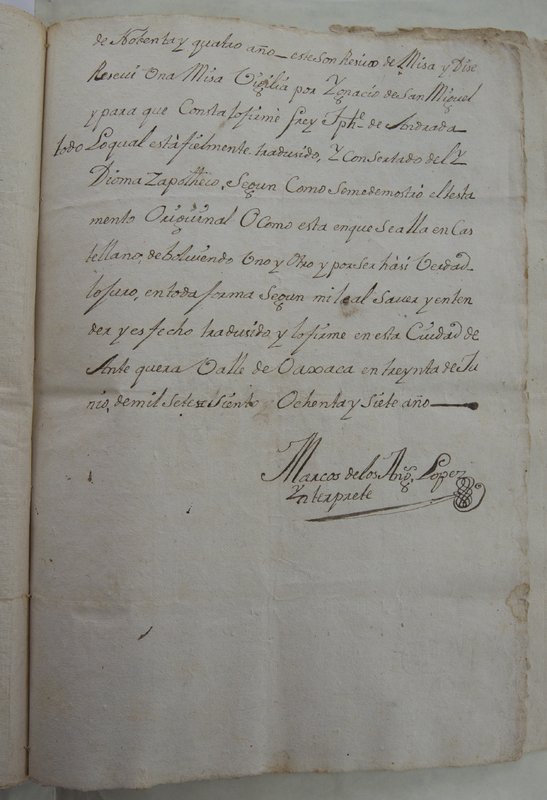 de Nobenta y quatro año_ este son Resivo de Misa y Dise
Resevi Una Misa Vigilia por Ygnacio de San Miguel
y para que Consta lo firme frey Jphe de Andrada
todo Lo qual està fielmente tradusido, y Consertado del Y
Dioma Zapotheco, Segun Como Se me demostrò el testa
mento Origuinal O Como esta en que Se alla en Cas
tellano, debolviendo Uno y Otro y por Ser hàsi Verdad_
lo juro, en toda forma Segun mi leal Saver y enten
der y es fecho tradusido y lo firme en esta Ciudad de
Ante quera Valle de Oaxaca en treynta de Ju
nio, de mil Sete Siento Ochenta y Siete año
Marcos de los Angs. Lopez
Ynterprete